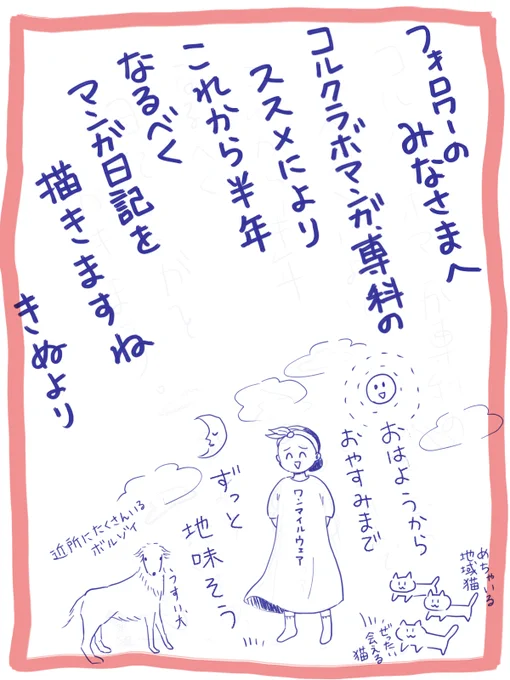 フォロワーの
みなさまへ
コルクラボマンガ専科の
ススメにより
これから半年
なるべく
マンガ日記を
描きますね
きぬより
おはようから
おやすみまで
ずっと
地味そう
ワンマイルウェア
近所にたくさんいる
ボルゾイ
うすい犬
めちゃいる
地域猫
ぜったい
会える
猫